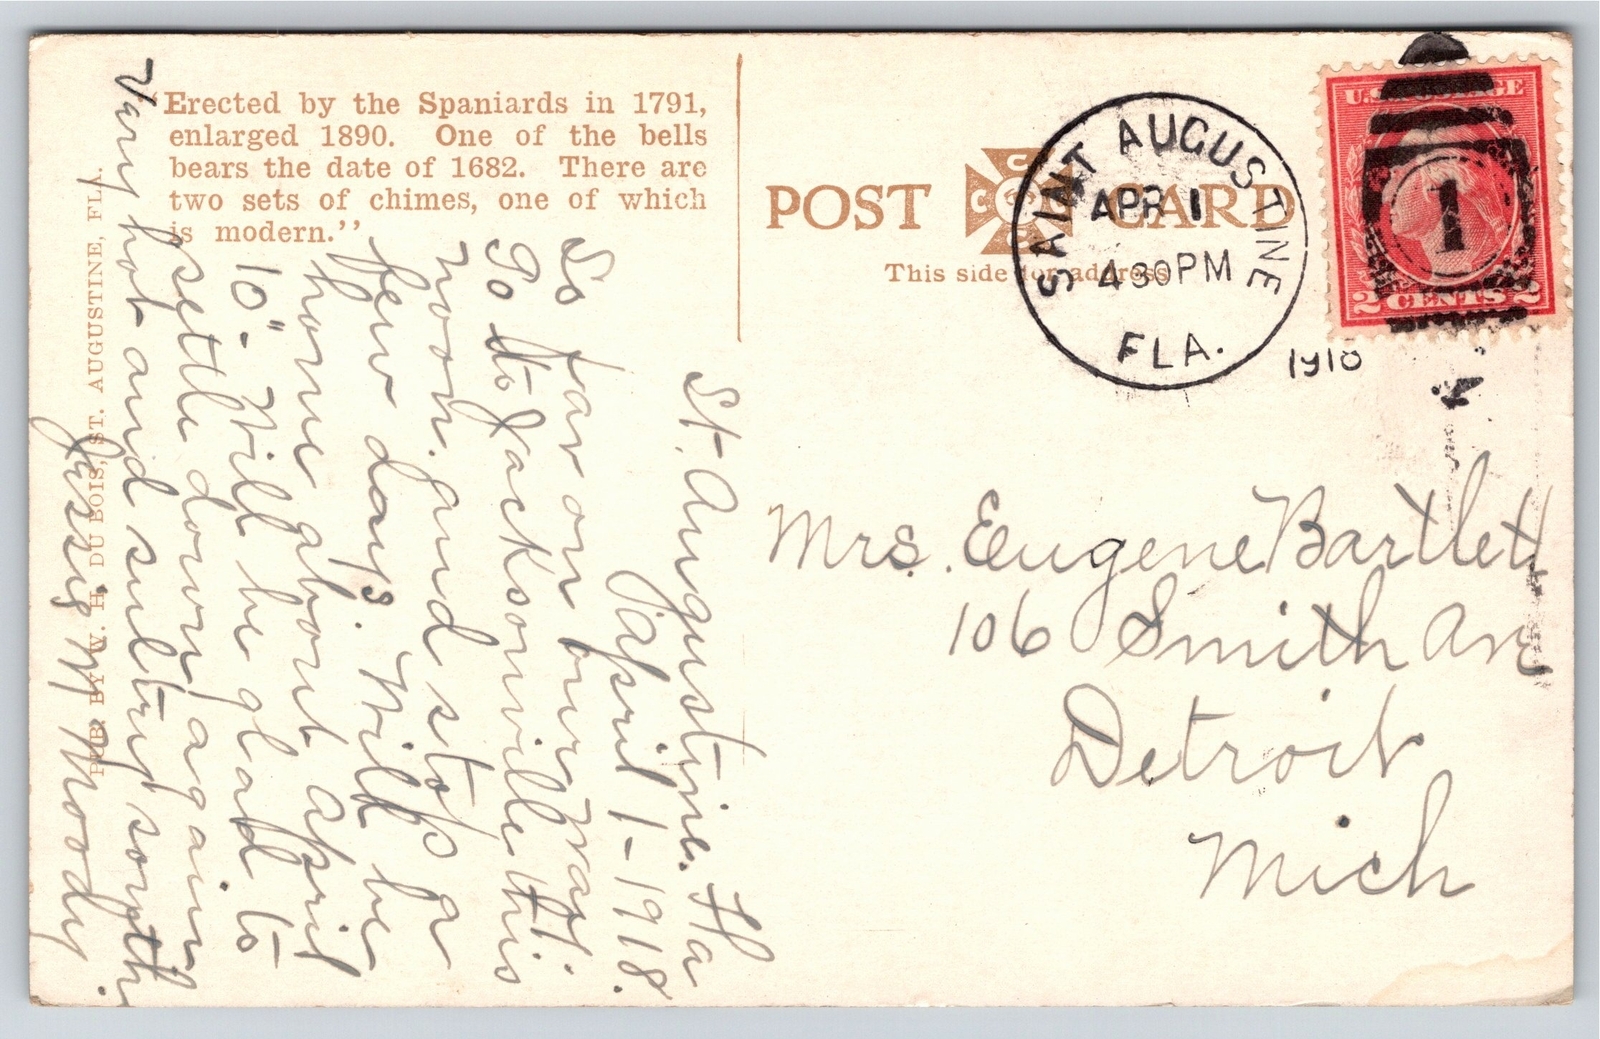 "Erected by the Spaniards in 1791,
enlarged 1890. One of the bells
bears the date of 1682. There are
two sets of chimes, one of which
is modern."
PUB. BY W. H. DU BOIS, ST. AUGUSTINE, FLA.
POST CARD
This side for address
SAINT AUGUSTINE
APR 1
4 30 PM
FLA.
1918
U.S. POSTAGE
2 CENTS 2
1
St. Augustine. Fla
April 1-1918.
So far on our way.
Go to Jacksonville this
noon. and stop a
few days. Will be
home about April
10". Will be glad to
settle down again
Very hot and sultry south.
M Moody
Mrs. Eugene Bartlett
106 Smith Ave
Detroit
Mich